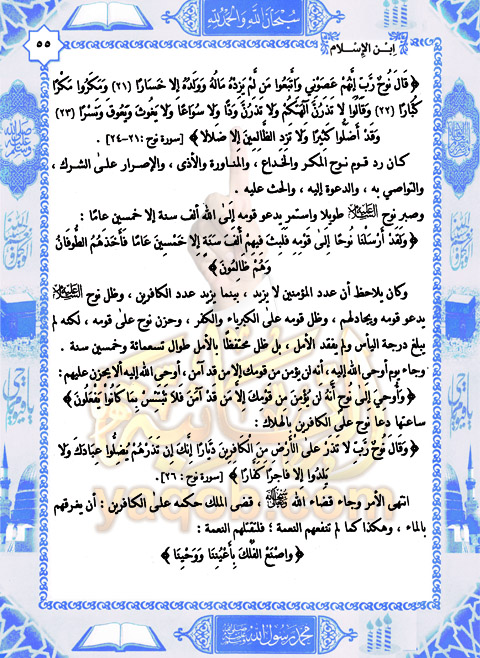 سُبْحَانَ اللهِ وَالْحَمْدُ لِلَّهِ
٥٥
ابن الإسلام
﴿ قَالَ نُوحٌ رَّبِّ إِنَّهُمْ عَصَوْنِي وَاتَّبَعُوا مَن لَّمْ يَزِدْهُ مَالُهُ وَوَلَدُهُ إِلا خَسَارًا (٢١) وَمَكَرُوا مَكْرًا
كُبَّارًا (٢٢) وَقَالُوا لا تَذَرُنَّ آلِهَتَكُمْ وَلا تَذَرُنَّ وَدًّا وَلا سُوَاعًا وَلا يَغُوثَ وَيَعُوقَ وَنَسْرًا (٢٣)
وَقَدْ أَضَلُّوا كَثِيرًا وَلا تَزِدِ الظَّالِمِينَ إِلا ضَلالاً ﴾ [سورة نوح : ٢١-٢٤] .
كان رد قوم نوح المكر والخداع ، والمناورة والأذى ، والإصرار على الشرك ،
والتواصي به ، والدعوة إليه ، والحث عليه .
وصبر نوح عليه السلام طويلا واستمر يدعو قومه إلى الله ألف سنة إلا خمسين عاما :
﴿ وَلَقَدْ أَرْسَلْنَا نُوحًا إِلَىٰ قَوْمِهِ فَلَبِثَ فِيهِمْ أَلْفَ سَنَةٍ إِلا خَمْسِينَ عَامًا فَأَخَذَهُمُ الطُّوفَانُ
وَهُمْ ظَالِمُونَ ﴾
وكان يلاحظ أن عدد المؤمنين لا يزيد ، بينما يزيد عدد الكافرين ، وظل نوح عليه السلام
يدعو قومه ويجادلهم ، وظل قومه على الكبرياء والكفر ، وحزن نوح على قومه ، لكنه لم
يبلغ درجة اليأس ولم يفقد الأمل ، بل ظل محتفظًا بالأمل طوال تسعمائة وخمسين سنة .
وجاء يوم أوحى الله إليه ، أنه لن يؤمن من قومك إلا من قد آمن ، أوحى الله إليه ألا يحزن عليهم :
﴿ وَأُوحِيَ إِلَىٰ نُوحٍ أَنَّهُ لَن يُؤْمِنَ مِن قَوْمِكَ إِلَّا مَن قَدْ آمَنَ فَلا تَبْتَئِسْ بِمَا كَانُوا يَفْعَلُونَ ﴾
ساعتها دعا نوح على الكافرين بالهلاك :
﴿ وَقَالَ نُوحٌ رَّبِّ لا تَذَرْ عَلَى الأَرْضِ مِنَ الْكَافِرِينَ دَيَّارًا إِنَّكَ إِن تَذَرْهُمْ يُضِلُّوا عِبَادَكَ وَلا
يَلِدُوا إِلا فَاجِرًا كَفَّارًا ﴾ [سورة نوح : ٢٦] .
انتهى الأمر وجاء قضاء الله ، قضى الملك حكمه على الكافرين : أن يغرقهم
بالماء ، وهكذا كما لم تنفعهم النعمة ؛ فلتقتلهم النعمة :
﴿ وَاصْنَعِ الْفُلْكَ بِأَعْيُنِنَا وَوَحْيِنَا ﴾
yaqob.com
محمد رسول الله